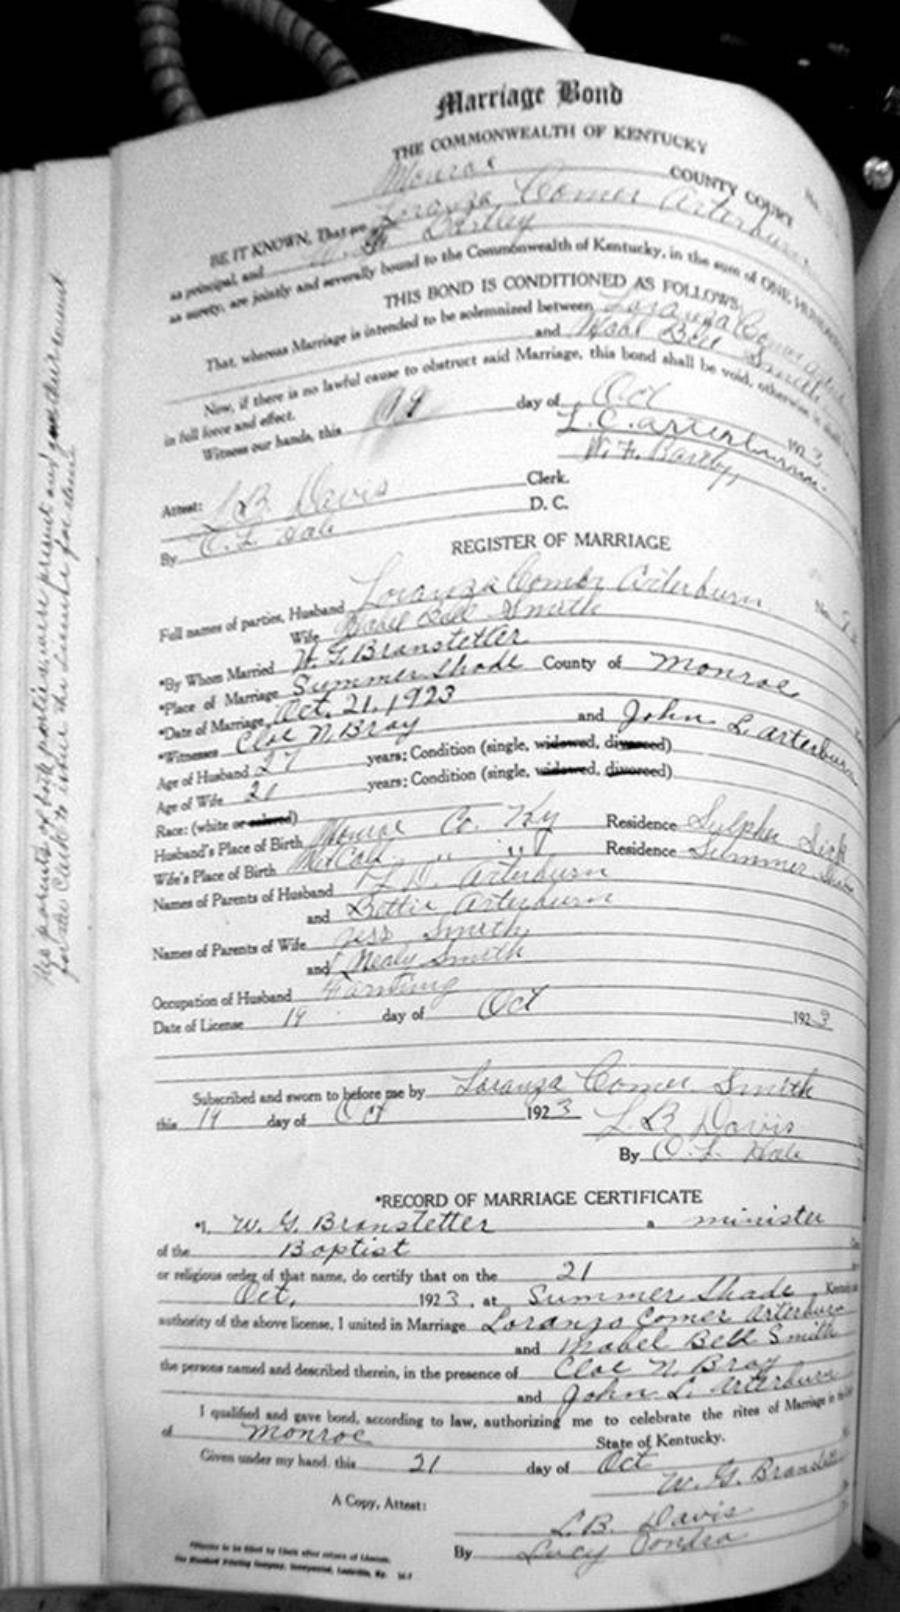 Marriage Bond
THE COMMONWEALTH OF KENTUCKY
Monroe COUNTY COURT
BE IT KNOWN, That we Loranza Comer Arterburn
as principal, and W. F. Bartley
as surety, are jointly and severally bound to the Commonwealth of Kentucky, in the sum of ONE HUNDRED
THIS BOND IS CONDITIONED AS FOLLOWS:
That, whereas Marriage is intended to be solemnized between Loranza Comer
and Mabel Bell Smith
Now, if there is no lawful cause to obstruct said Marriage, this bond shall be void, otherwise
in full force and effect.
Witness our hands, this 19 day of Oct 1923
L. C. Arterburn
W. F. Bartley
Attest: L B Davis Clerk.
By O. L. Hale D. C.
REGISTER OF MARRIAGE
Full names of parties, Husband Loranza Comer Arterburn No.
Wife Mabel Bell Smith
*By Whom Married W. G. Branstetter
*Place of Marriage Summer Shade County of Monroe
*Date of Marriage Oct. 21, 1923
*Witnesses Cloe N. Bray and John L. Arterburn
Age of Husband 27 years; Condition (single, widowed, divorced)
Age of Wife 21 years; Condition (single, widowed, divorced)
Race: (white or colored)
Husband's Place of Birth Monroe Co. Ky Residence Sulphur Lick
Wife's Place of Birth Metcalf " " Residence Summer Shade
Names of Parents of Husband L. D. Arterburn
and Bettie Arterburn
Names of Parents of Wife Jess Smith
and Nealy Smith
Occupation of Husband Farming
Date of License 19 day of Oct 1923
Subscribed and sworn to before me by Loranza Comer Smith
this 19 day of Oct 1923
L. B. Davis
By O. L. Hale
*RECORD OF MARRIAGE CERTIFICATE
*I, W. G. Branstetter a minister
of the Baptist
or religious order of that name, do certify that on the 21
Oct, 1923, at Summer Shade, Kentucky
authority of the above license, I united in Marriage Loranza Comer Arterburn
and Mabel Bell Smith
the persons named and described therein, in the presence of Cloe N. Bray
and John L. Arterburn
I qualified and gave bond, according to law, authorizing me to celebrate the rites of Marriage in the
of Monroe State of Kentucky.
Given under my hand, this 21 day of Oct
W. G. Branstetter
A Copy, Attest:
L. B. Davis
By Lucy
The parents of both parties were present and
for the Clerk to issue the license for same